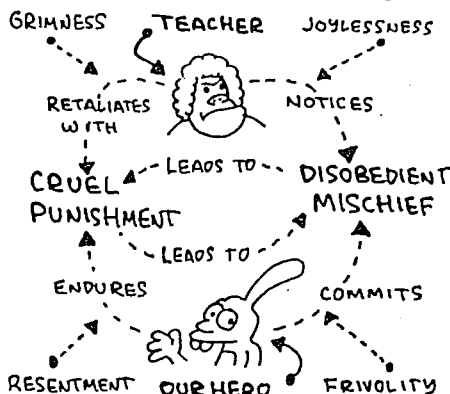 GRIMNESS
TEACHER
JOYLESSNESS
RETALIATES
WITH
NOTICES
LEADS TO
CRUEL
PUNISHMENT
DISOBEDIENT
MISCHIEF
LEADS TO
ENDURES
COMMITS
RESENTMENT
OUR HERO
FRIVOLITY